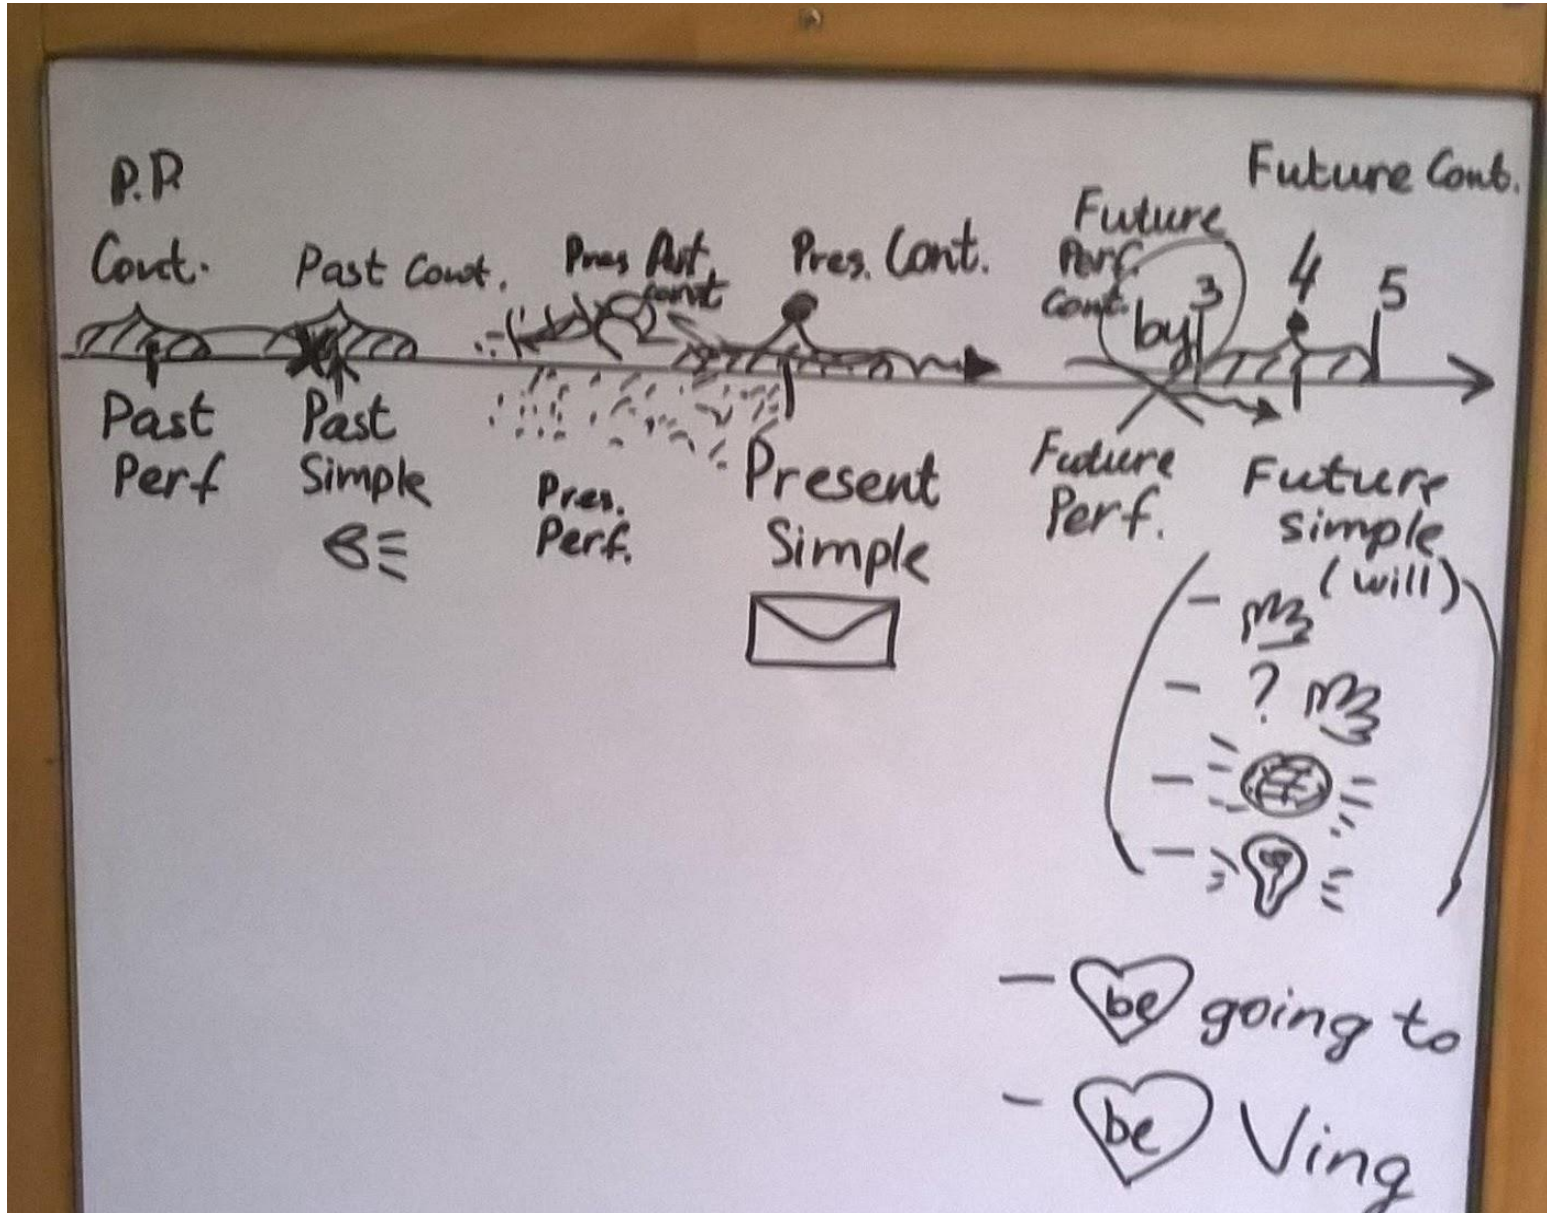 P.P.
Cont.
Past Cont.
Pres. Cont.
Future
Perf.
Cont.
Future Cont.
by
3
4
5
Past
Perf
Past
Simple
Pres.
Perf.
Present
Simple
Future
Perf.
Future
simple
(will)
?
be going to
be Ving